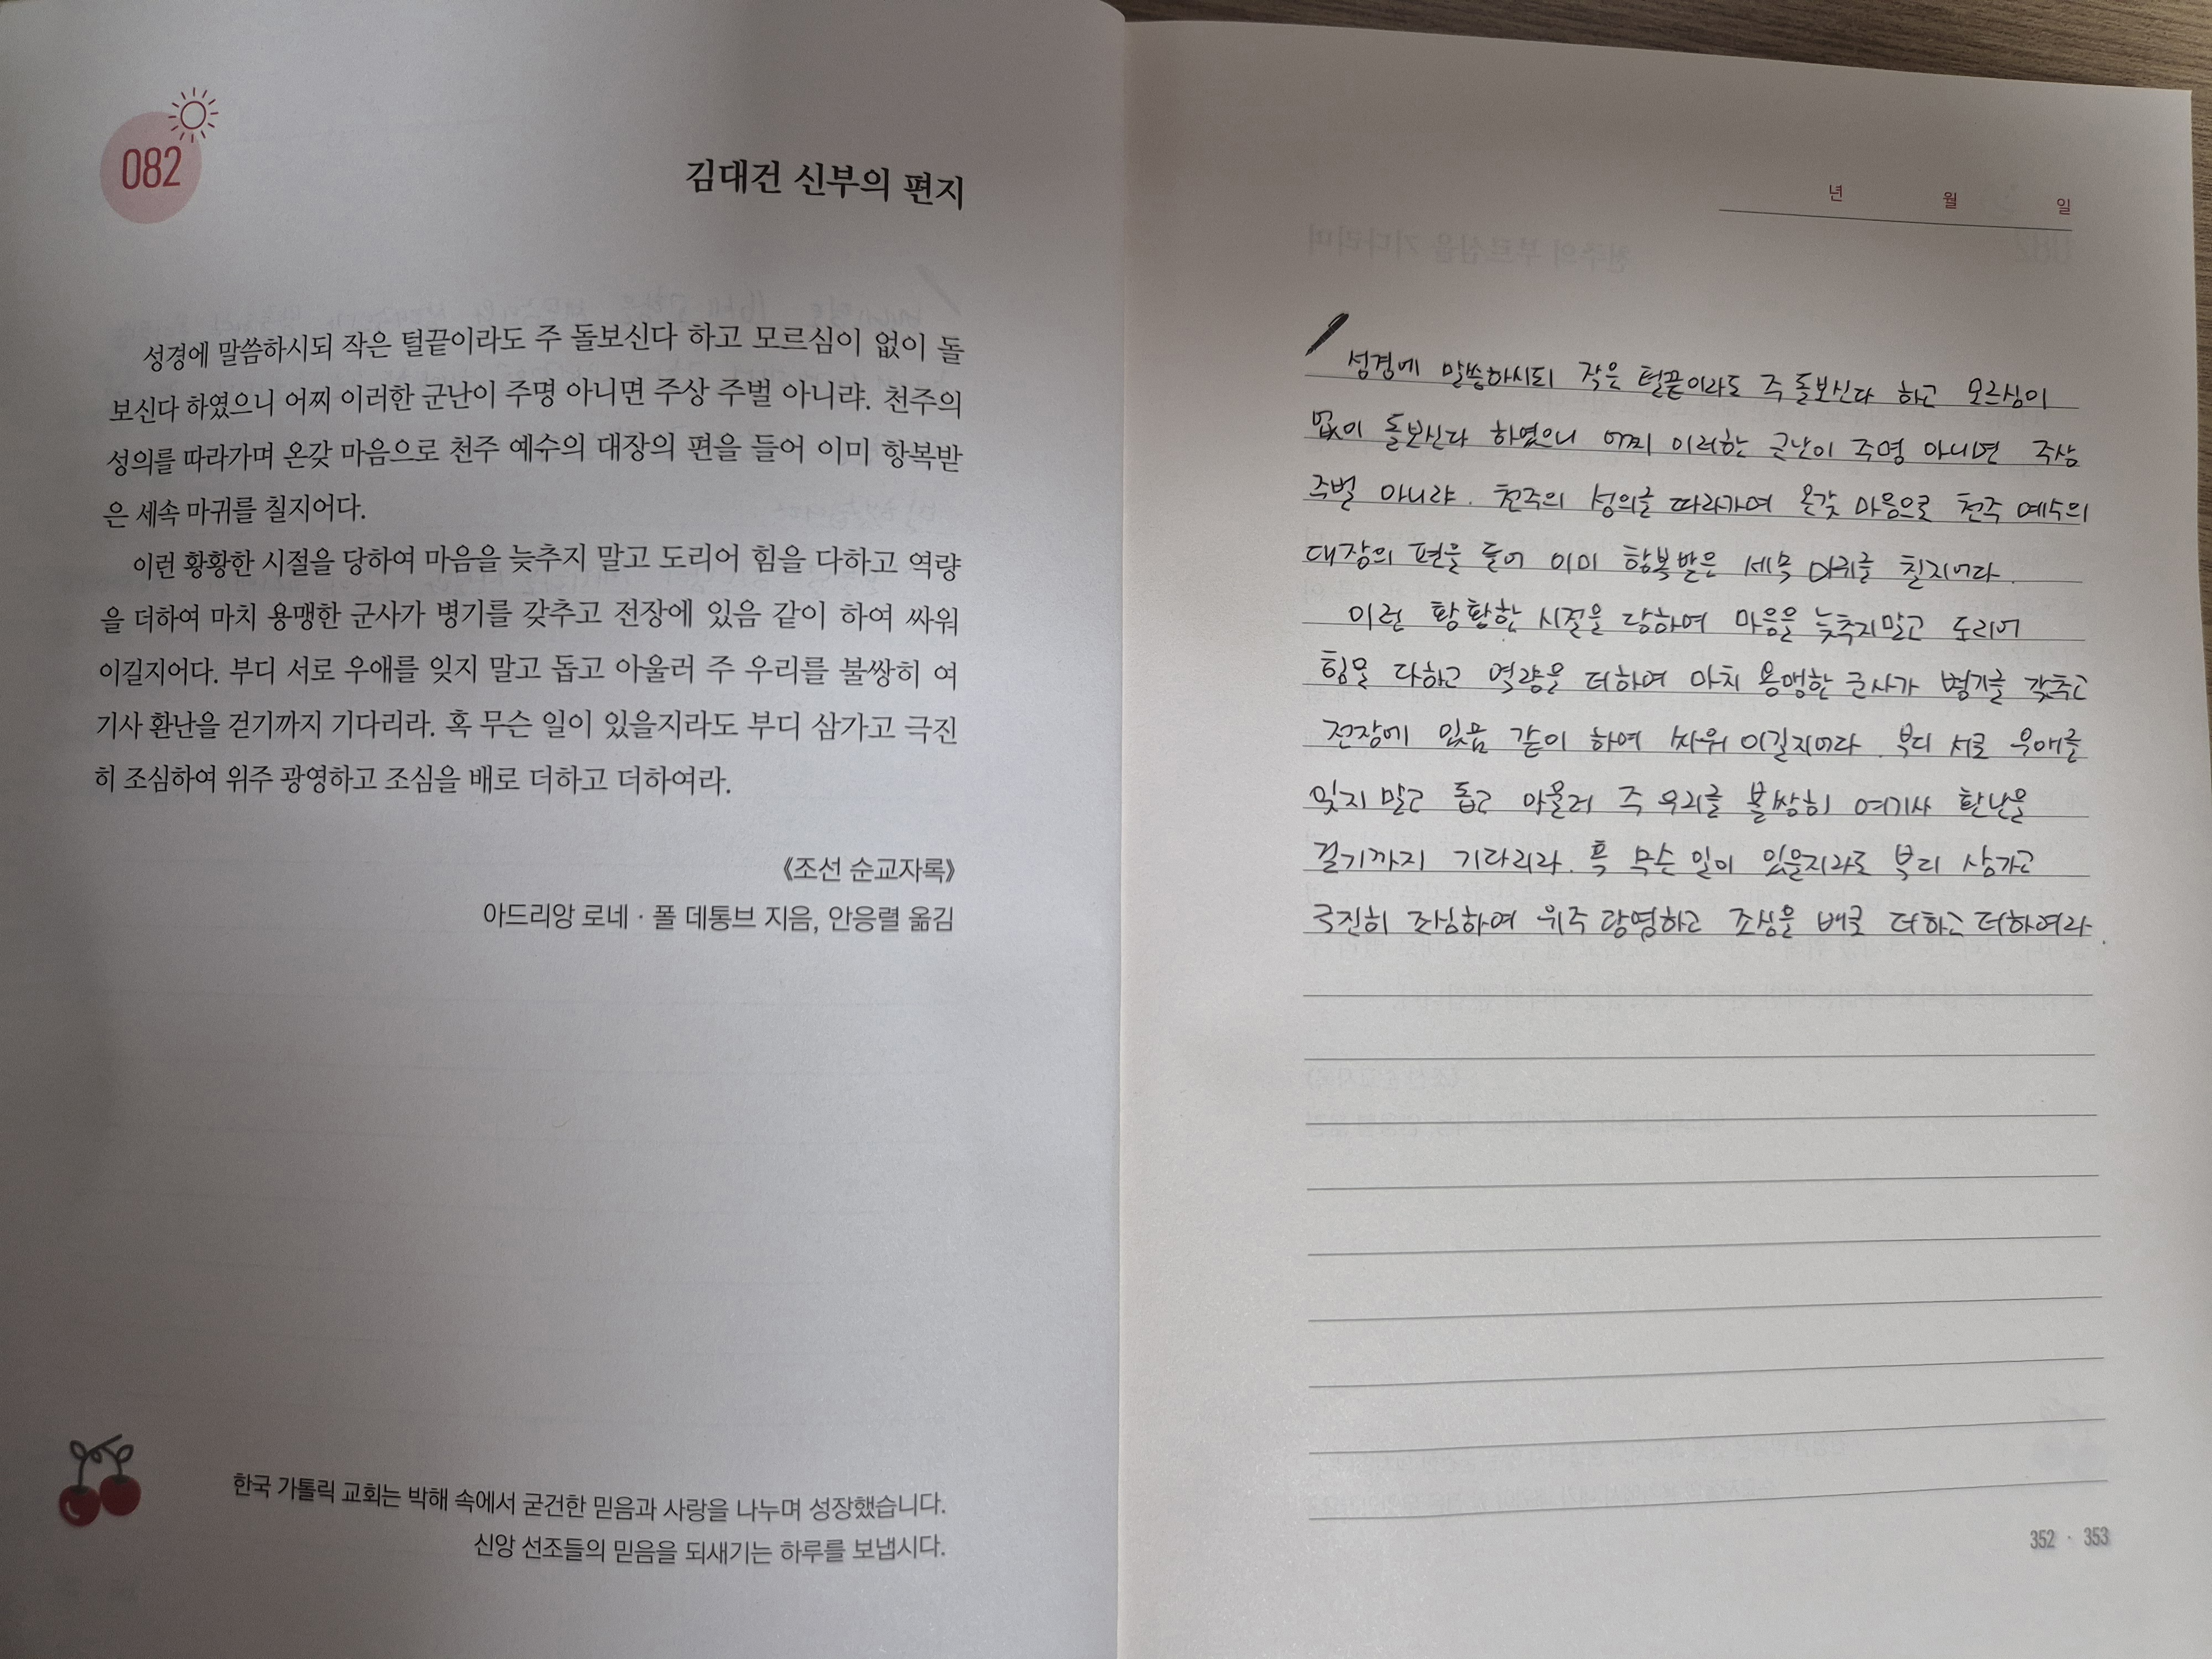 082
김대건 신부의 편지
성경에 말씀하시되 작은 털끝이라도 주 돌보신다 하고 모르심이 없이 돌
보신다 하였으니 어찌 이러한 군난이 주명 아니면 주상 주벌 아니랴. 천주의
성의를 따라가며 온갖 마음으로 천주 예수의 대장의 편을 들어 이미 항복받
은 세속 마귀를 칠지어다.
이런 황황한 시절을 당하여 마음을 늦추지 말고 도리어 힘을 다하고 역량
을 더하여 마치 용맹한 군사가 병기를 갖추고 전장에 있음 같이 하여 싸워
이길지어다. 부디 서로 우애를 잊지 말고 돕고 아울러 주 우리를 불쌍히 여
기사 환난을 걷기까지 기다리라. 혹 무슨 일이 있을지라도 부디 삼가고 극진
히 조심하여 위주 광영하고 조심을 배로 더하고 더하여라.
《조선 순교자록》
아드리앙 로네 · 폴 데통브 지음, 안응렬 옮김
한국 가톨릭 교회는 박해 속에서 굳건한 믿음과 사랑을 나누며 성장했습니다.
신앙 선조들의 믿음을 되새기는 하루를 보냅시다.
년 월 일
성경에 말씀하시되 작은 털끝이라도 주 돌보신다 하고 모르심이
없이 돌보신다 하였으니 어찌 이러한 군난이 주명 아니면 주상
주벌 아니랴. 천주의 성의를 따라가며 온갖 마음으로 천주 예수의
대장의 편을 들어 이미 항복받은 세속 마귀를 칠지어다.
이런 황황한 시절을 당하여 마음을 늦추지말고 도리어
힘을 다하고 역량을 더하여 마치 용맹한 군사가 병기를 갖추고
전장에 있음 같이 하여 싸워 이길지어다. 부디 서로 우애를
잊지 말고 돕고 아울러 주 우리를 불쌍히 여기사 환난을
걷기까지 기다리라. 혹 무슨 일이 있을지라도 부디 삼가고
극진히 조심하여 위주 광영하고 조심을 배로 더하고 더하여라.
352 · 353